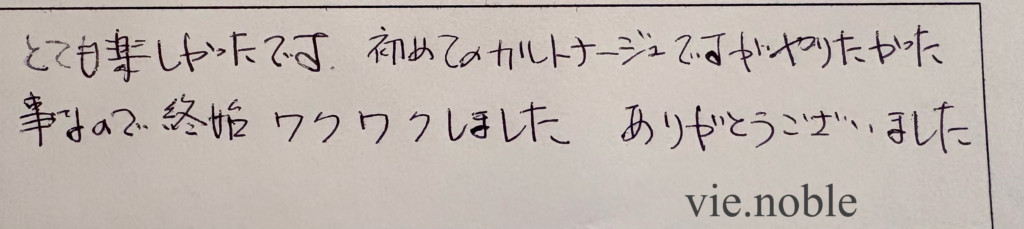 とても楽しかったです. 初めてのカルトナージュですがやりたかった
事なので終始ワクワクしました ありがとうございました
vie.noble